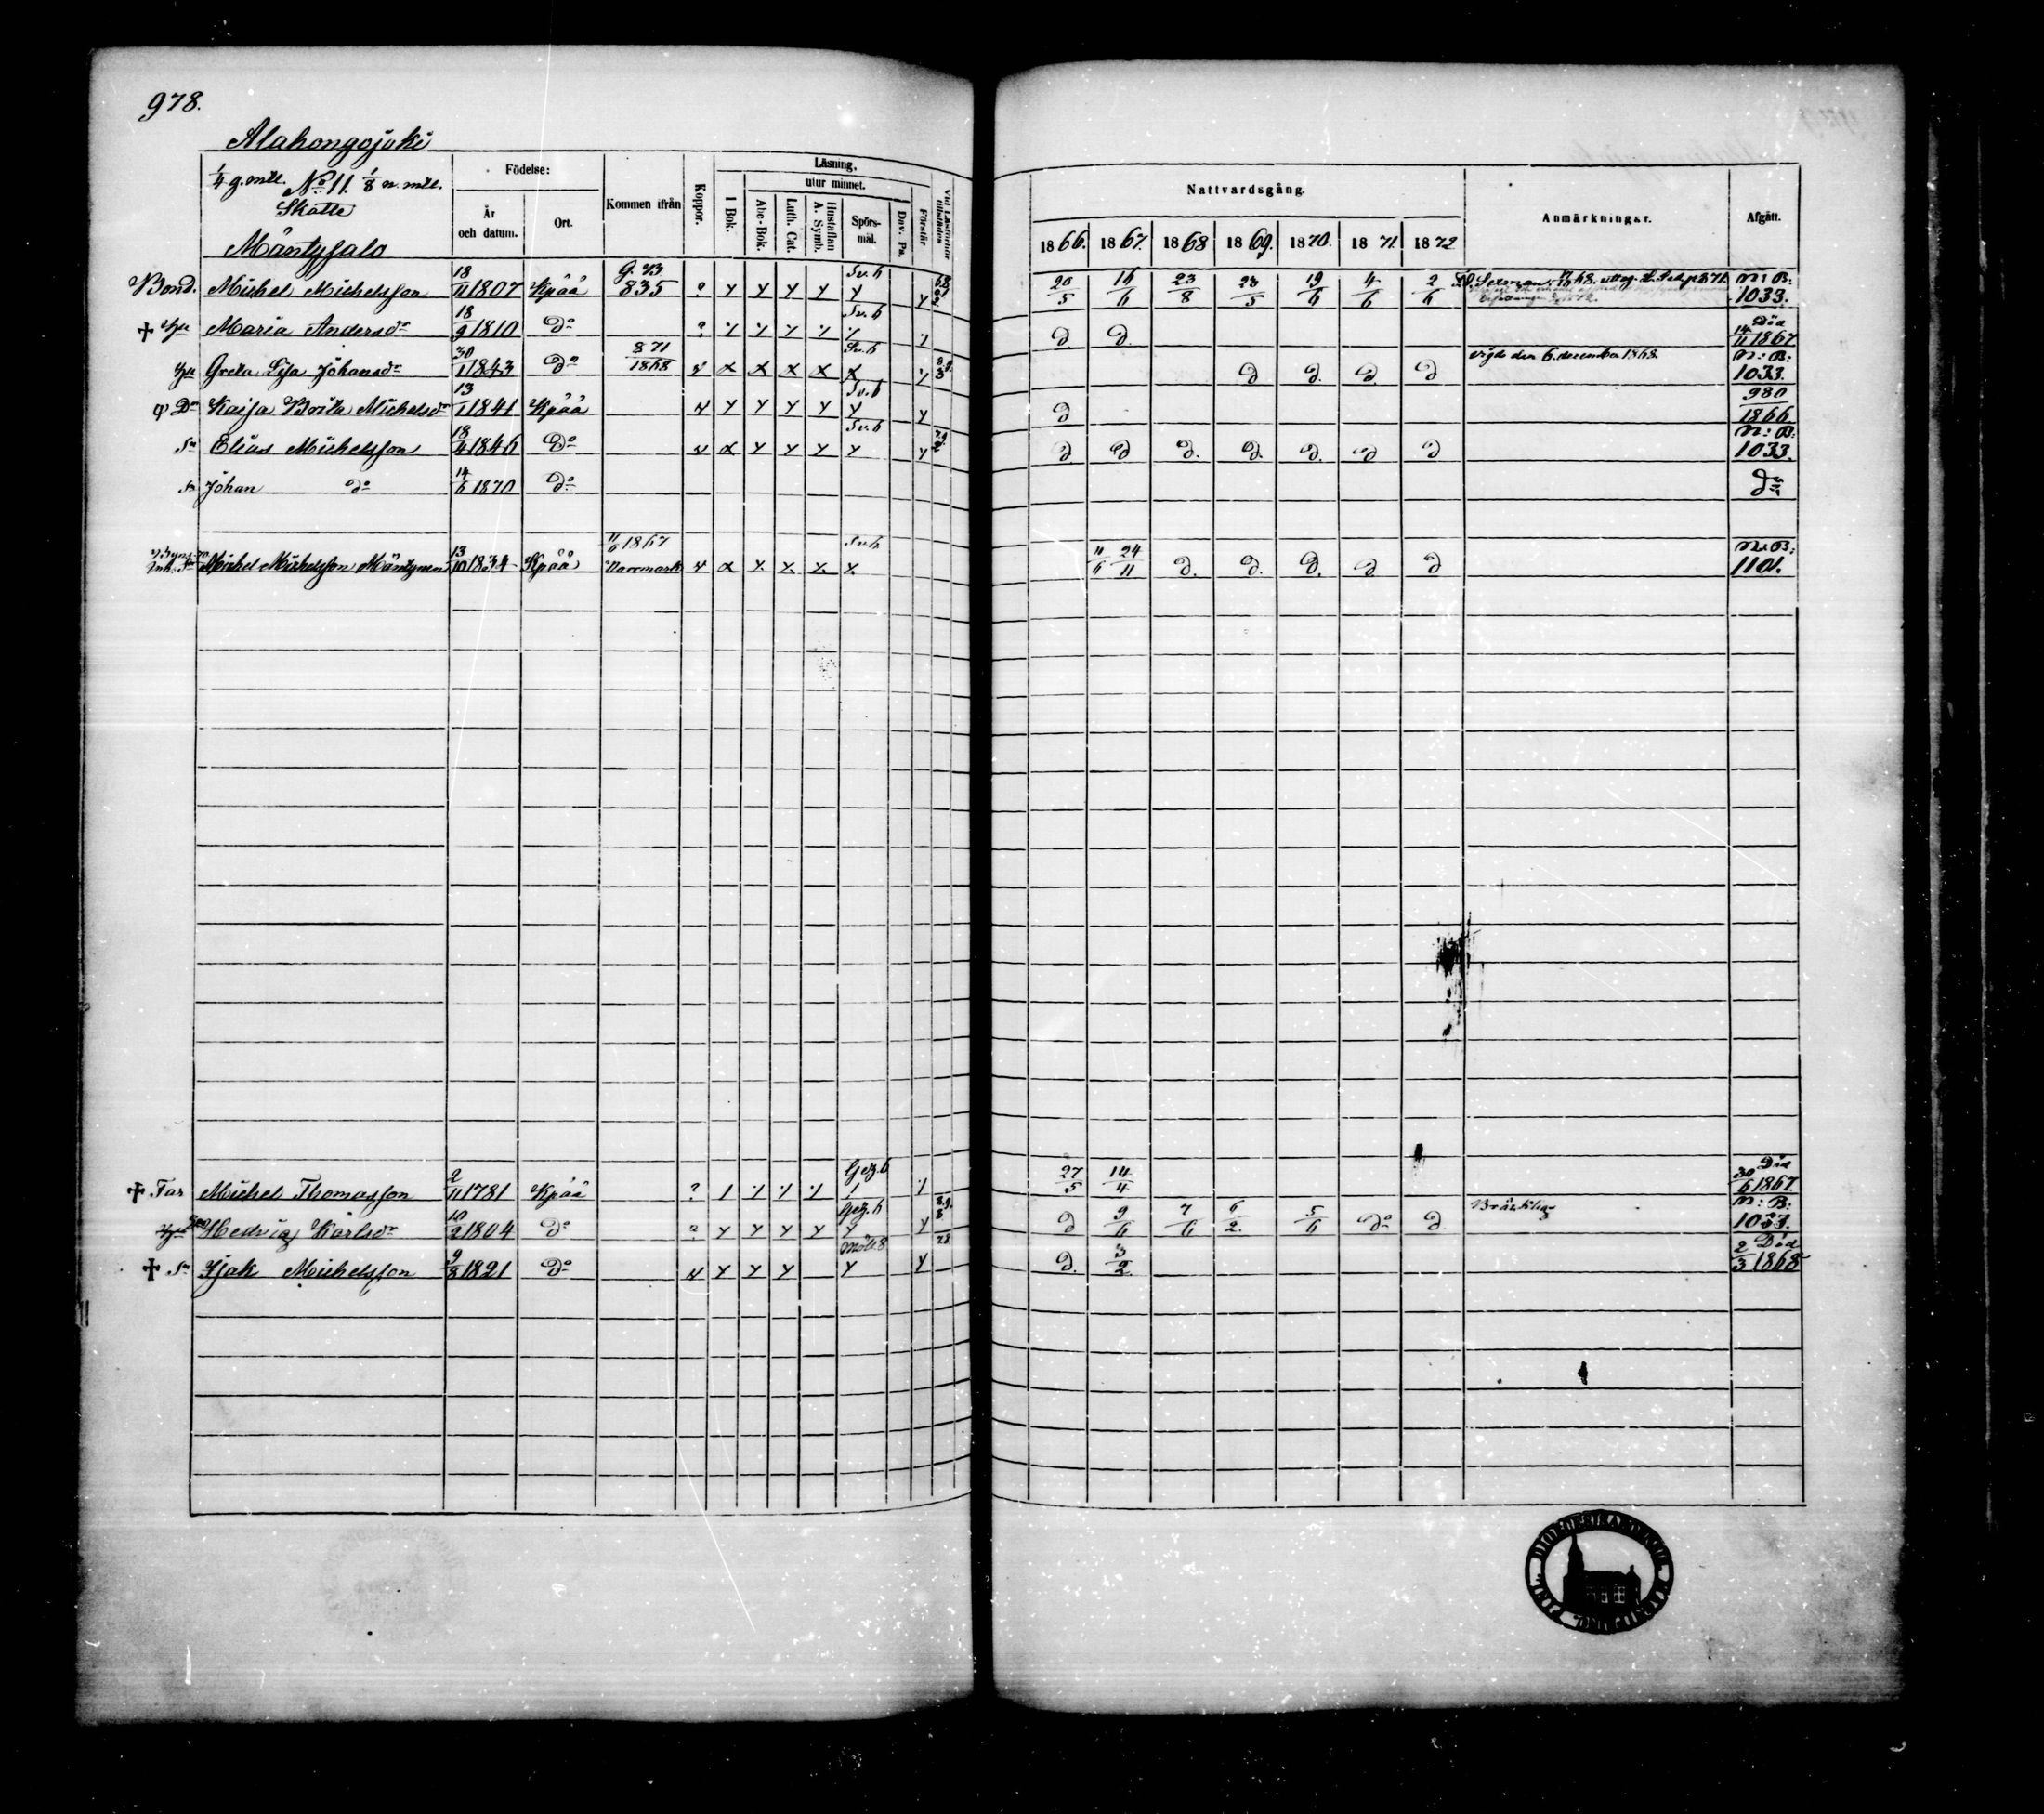 978.
Alahongojoki
1/4 g. mtl. No 11. 1/8 n. mtl.
Skatte
Mäntysalo
Födelse:
År och datum.
Ort.
Kommen ifrån
Koppor.
Läsning,
I Bok.
utur minnet.
Abc-Bok.
Luth. Cat.
Hustaflan A. Symb.
Spörsmål.
Dav. Ps.
Förstår
Nattvardsgång.
1866. 1867. 1868 1869. 1870. 1871. 1872
Anmärkningar.
Afgått.
Bond. Michel Michelsson 18/11 1807 Kpää G. B 835 ? y y y y Sv.b y y 20/5 16/6 23/8 23/5 19/6 4/6 2/6 N: B: 1033.
† Hu Maria Andersdr 18/9 1810 Do ? Sv.b D D. Död 14/11 1867
Hu Greta Lisa Johansdr 30/1 1843 Do 871/1868 v x x x x Sv.b x D D. D. D vigde den 6 december 1868. N: B: 1033.
Dr Kaisa Brita Michelsdr 13/1 1841 Kpää v y y y y Sv.b y y D 980/1866
Sn Elias Michelsson 18/4 1846 Do v x y y y Sv.b y y D. D D. D. D. D D N: B: 1033.
Sn Johan do 14/6 1870 Do Do
Inh. Sn Michel Michelsson Mäntynen 13/10 1834 Kpää 11/6 1867 Norrmark v x x x x Sv.b x 11/6 24/11 D. D. D. D D N: B: 1101.
† Far Michel Thomasson 2/11 1781 Kpää ? Gez.b 27/5 14/11 Död 30/6 1867.
Hu Hedvig Karlsdr 10/2 1804 Do ? y y y y Gez.b y y D 9/6 7/6 6/2. 5/6 Do D Bräcklig N: B: 1033.
† Sn Isak Michelsson 9/8 1821 Do v y y y y y D. 3/2 Död 2/3 1868